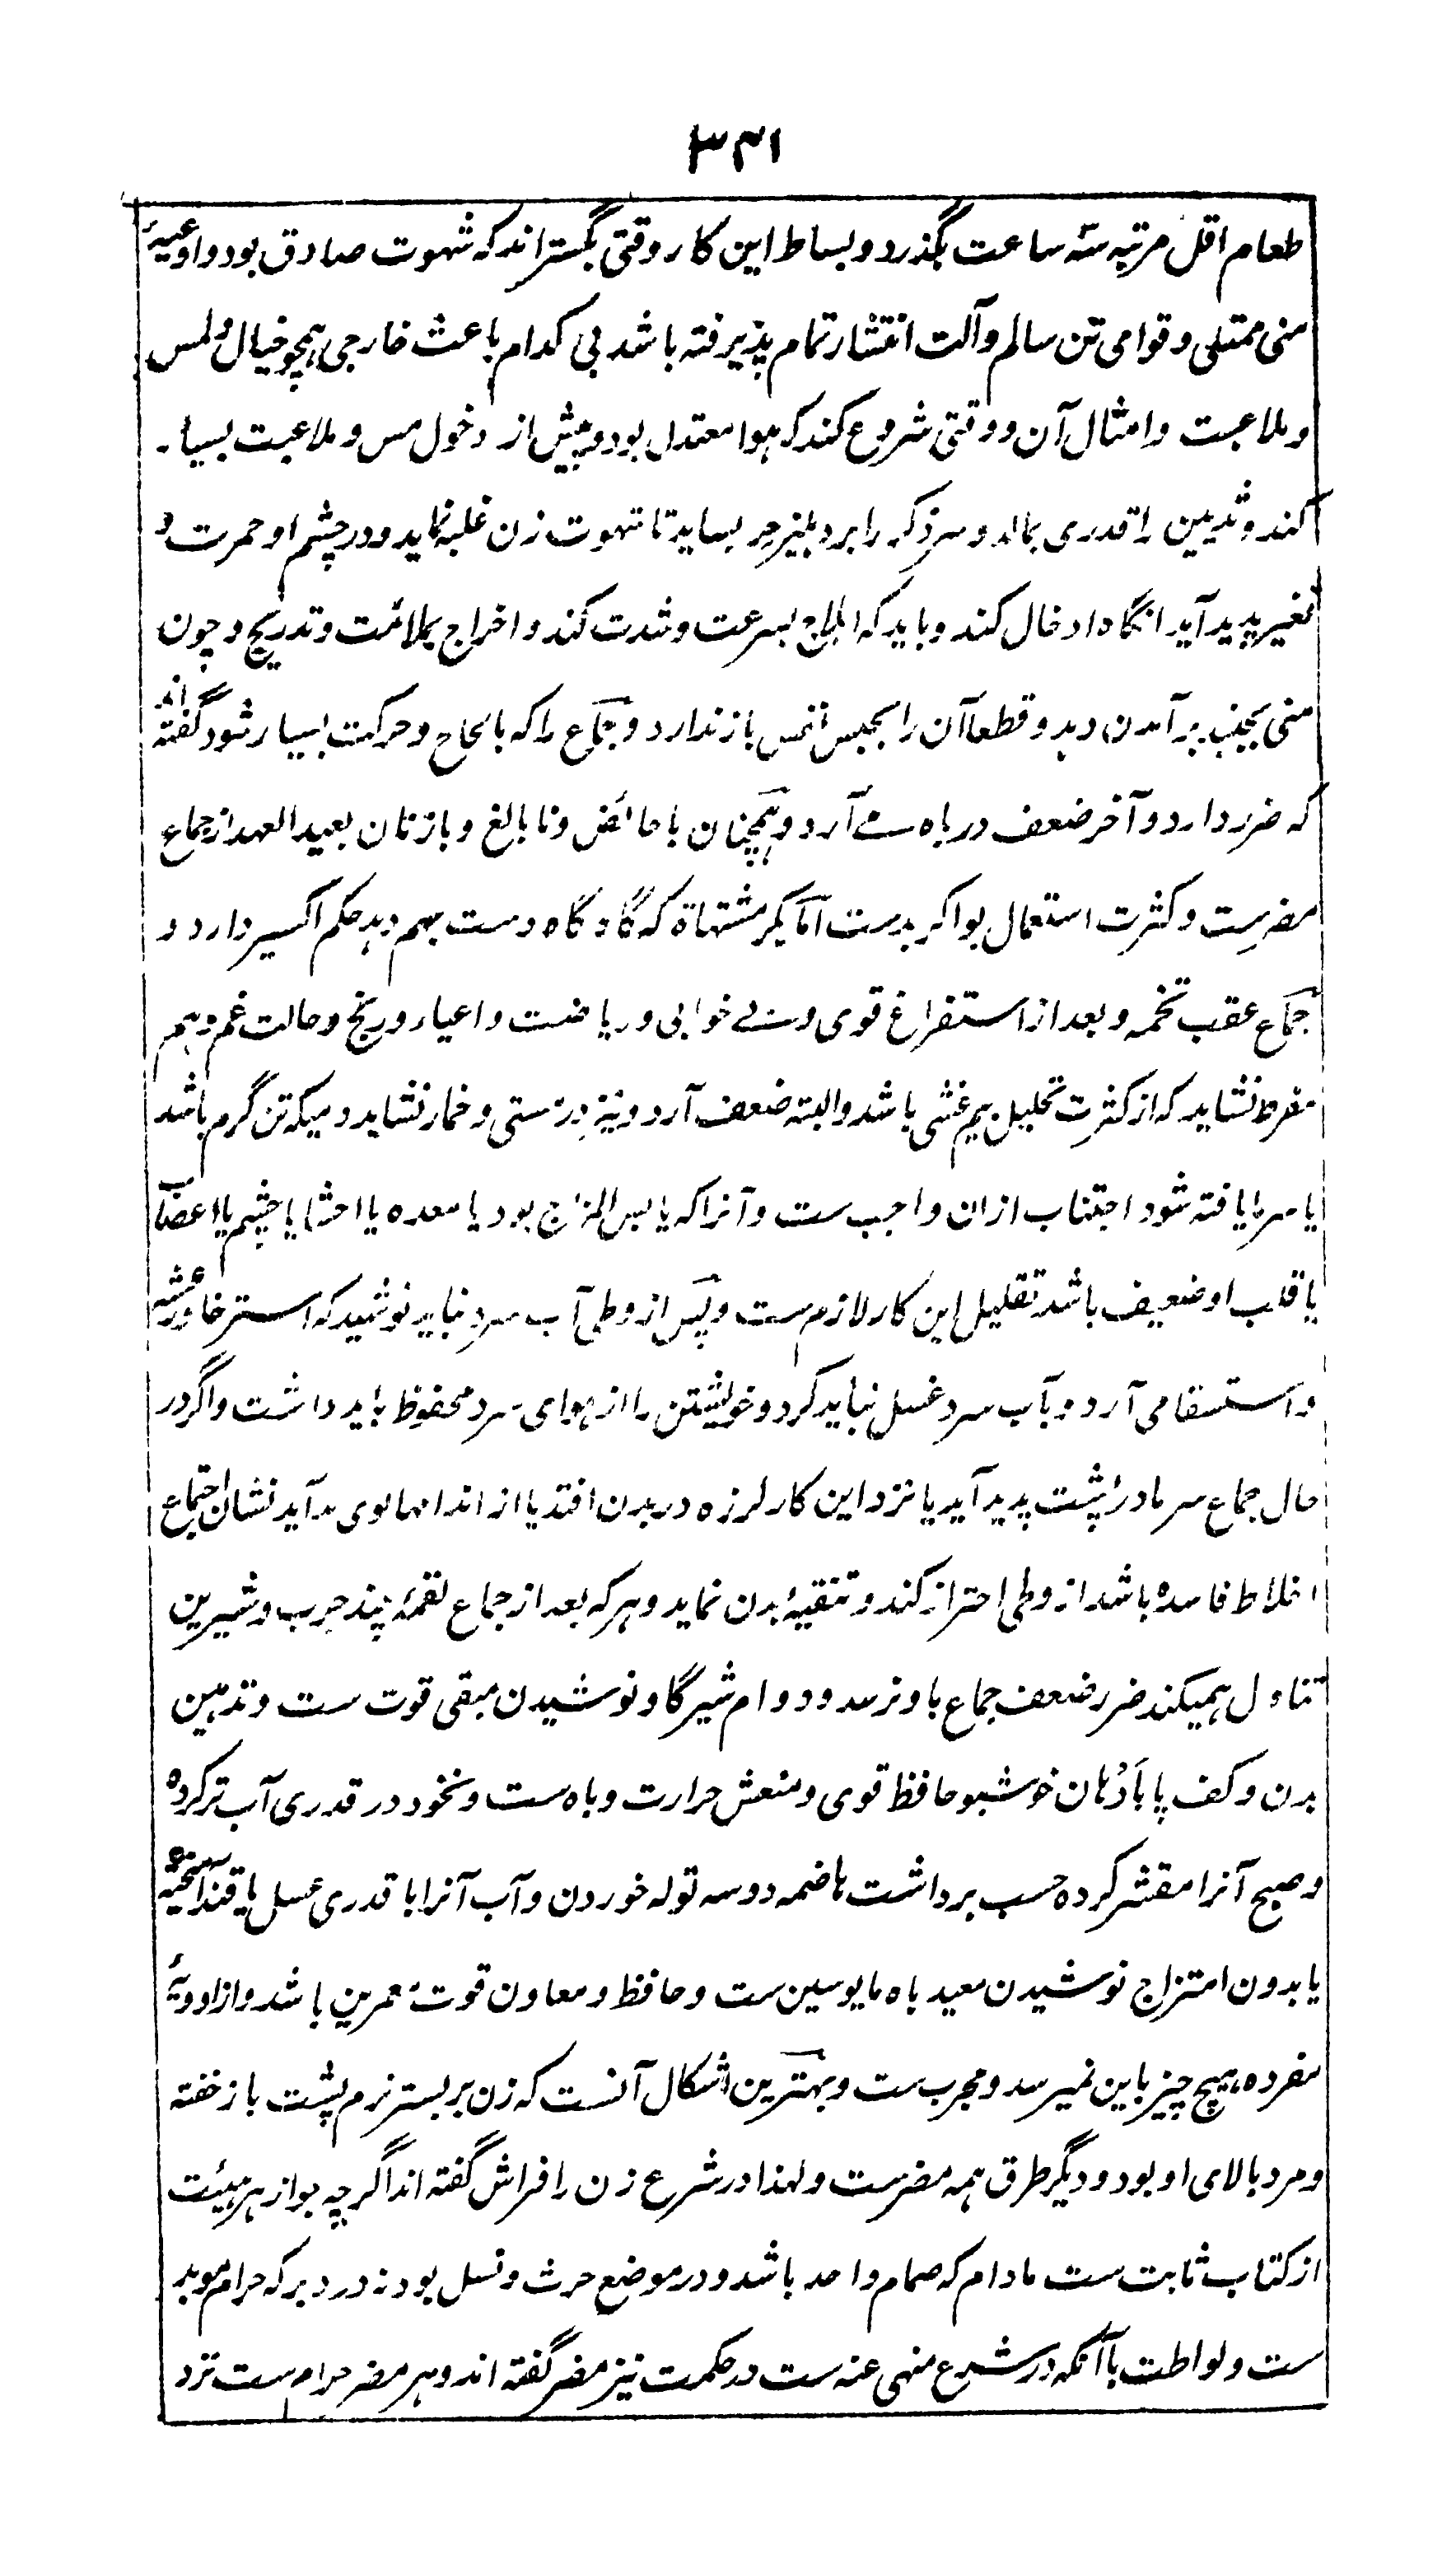 ۳۴۱
طعام اقل مرتبه سه ساعت بگذرد و بساط این کار وقتی بگستراند که شهوت صادق بود و اوعیهٔ
منی ممتلی و قوامی تن سالم و آلت انتشار تمام پذیرفته باشد بی کدام باعث خارجی همچو خیال و لمس
و ملاعبت و امثال آن و وقتی شروع کند که هوا معتدل بود و پیش از دخول مس و ملاعبت بسیا
کند و ثدیین را قدری بمالد و سر ذکر را بر دهلیز حر بساید تا شهوت زن غلبه نماید و در چشم او حمرت و
تغیر پدید آید آنگاه ادخال کند و باید که ایلاج بسرعت و شدت کند و اخراج بملائمت و تدریج و چون
منی بجنبد برآمدن دهد و قطعا آن را بحبس نفس باز ندارد و جماع را که بالحاح و حرکت بسیار شود گفته اند
که ضرر دارد و آخر ضعف در باه می آرد و همچنان با حائض و نا بالغ و با زنان بعید العهد از جماع
مضرست و کثرت استعمال بواکر بدست اما بکر مشتهاة که گاه گاه دست بهم دهد حکم اکسیر دارد و
جماع عقب تخمه و بعد از استفراغ قوی و بی خوابی و ریاضت و اعیاء و رنج و حالت غم و هم
مفرط نشاید که از کثرت تحلیل بیم غشی باشد و البته ضعف آرد و نیز در مستی و خمار نشاید و میکه تن گرم باشد
یا سرما یافته شود اجتناب ازان واجب ست و آنرا که یابس المزاج بود یا معده یا احشا یا چشم یا اعصاب
یا قلب او ضعیف باشد تقلیل این کار لازم ست و پس از وطی آب سرد نباید نوشید که استرخا و رعشه
و استسقا می آرد و بآب سرد غسل نباید کرد و خویشتن را از هوای سرد محفوظ باید داشت و اگر در
حال جماع سرما در پشت پدید آید یا نزد این کار لرزه در بدن افتد یا از اندامها بوی بد آید نشان اجتماع
اخلاط فاسده باشد از وطی احتراز کند و تنقیهٔ بدن نماید و هر که بعد از جماع لقمهٔ چند چرب و شیرین
تناول همیکند ضرر ضعف جماع باو نرسد و دوام شیر گاو نوشیدن مبقی قوت ست و تدهین
بدن و کف پا بادهان خوشبو حافظ قوی و منعش حرارت و باه ست و نخود در قدری آب تر کرده
و صبح آنرا مقشر کرده حسب برداشت هاضمه دو سه توله خوردن و آب آنرا با قدری عسل یا قند آمیخته
یا بدون امتزاج نوشیدن معید باه مایوسین ست و حافظ و معاون قوت معمرین باشد و از ادویهٔ
مفرده هیچ چیز باین نمیرسد و مجرب ست و بهترین اشکال آنست که زن بر بستر نرم پشت باز خفته
و مرد بالای او بود و دیگر طرق همه مضرست و لهذا در شرع زن را فراش گفته اند اگرچه جواز هر هیئت
از کتاب ثابت ست مادام که صمام واحد باشد و در موضع حرث و نسل بود نه در دبر که حرام موبد
ست و لواطت با آنکه در شرع منهی عنه ست در حکمت نیز مضر گفته اند و هر مضر حرام ست نزد